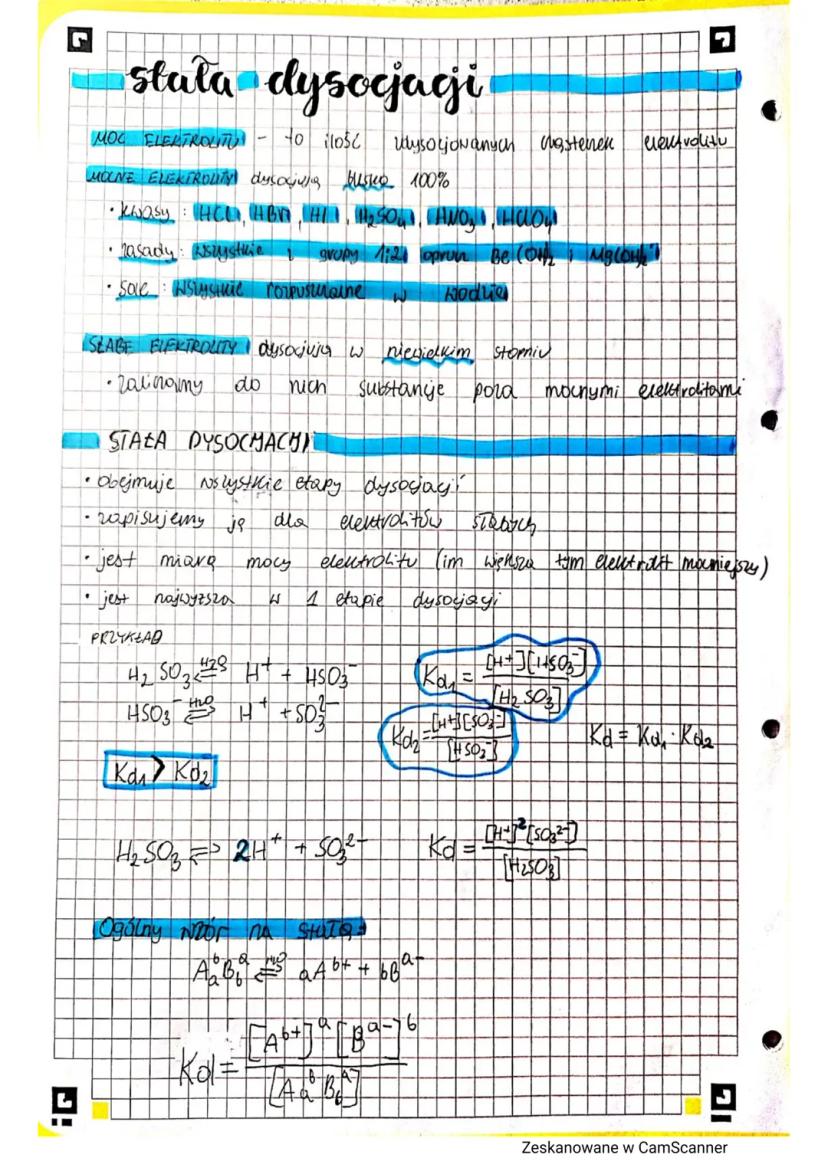 stała dysocjacji
MOC ELEKTROLITU - to ilość zdysocjowanych cząsteczek elektrolitu
MOCNE ELEKTROLITY dysocjują blisko 100%
• kwasy : HCl, HBr, HI, H₂SO₄, HNO₃, HClO₄
• zasady: wszystkie z grupy 1:2, oprócz Be(OH)₂ i Mg(OH)₂
• sole : wszystkie rozpuszczalne w wodzie
SŁABE ELEKTROLITY dysocjują w niewielkim stopniu
• zaliczamy do nich substancje poza mocnymi elektrolitami
STAŁA DYSOCJACJI
• obejmuje wszystkie etapy dysocjacji
• zapisujemy ją dla elektrolitów słabych
• jest miarą mocy elektrolitu (im większa tym elektrolit mocniejszy)
• jest najwyższa w 1 etapie dysocjacji
PRZYKŁAD
H₂SO₃ ⇌ H₂O H⁺ + HSO₃⁻ Kd₁ = [H⁺][HSO₃⁻] / [H₂SO₃]
HSO₃⁻ ⇌ H₂O H⁺ + SO₃²⁻ Kd₂ = [H⁺][SO₃²⁻] / [HSO₃⁻] Kd = Kd₁ · Kd₂
Kd₁ > Kd₂
H₂SO₃ ⇌ 2H⁺ + SO₃²⁻ Kd = [H⁺]²[SO₃²⁻] / [H₂SO₃]
Ogólny wzór na stałą:
AₐᵇB_bᵃ ⇌ H₂O aAᵇ⁺ + bBᵃ⁻
Kd = [Aᵇ⁺]ᵃ [Bᵃ⁻]ᵇ / [AₐᵇB_bᵃ]
Zeskanowane w CamScanner